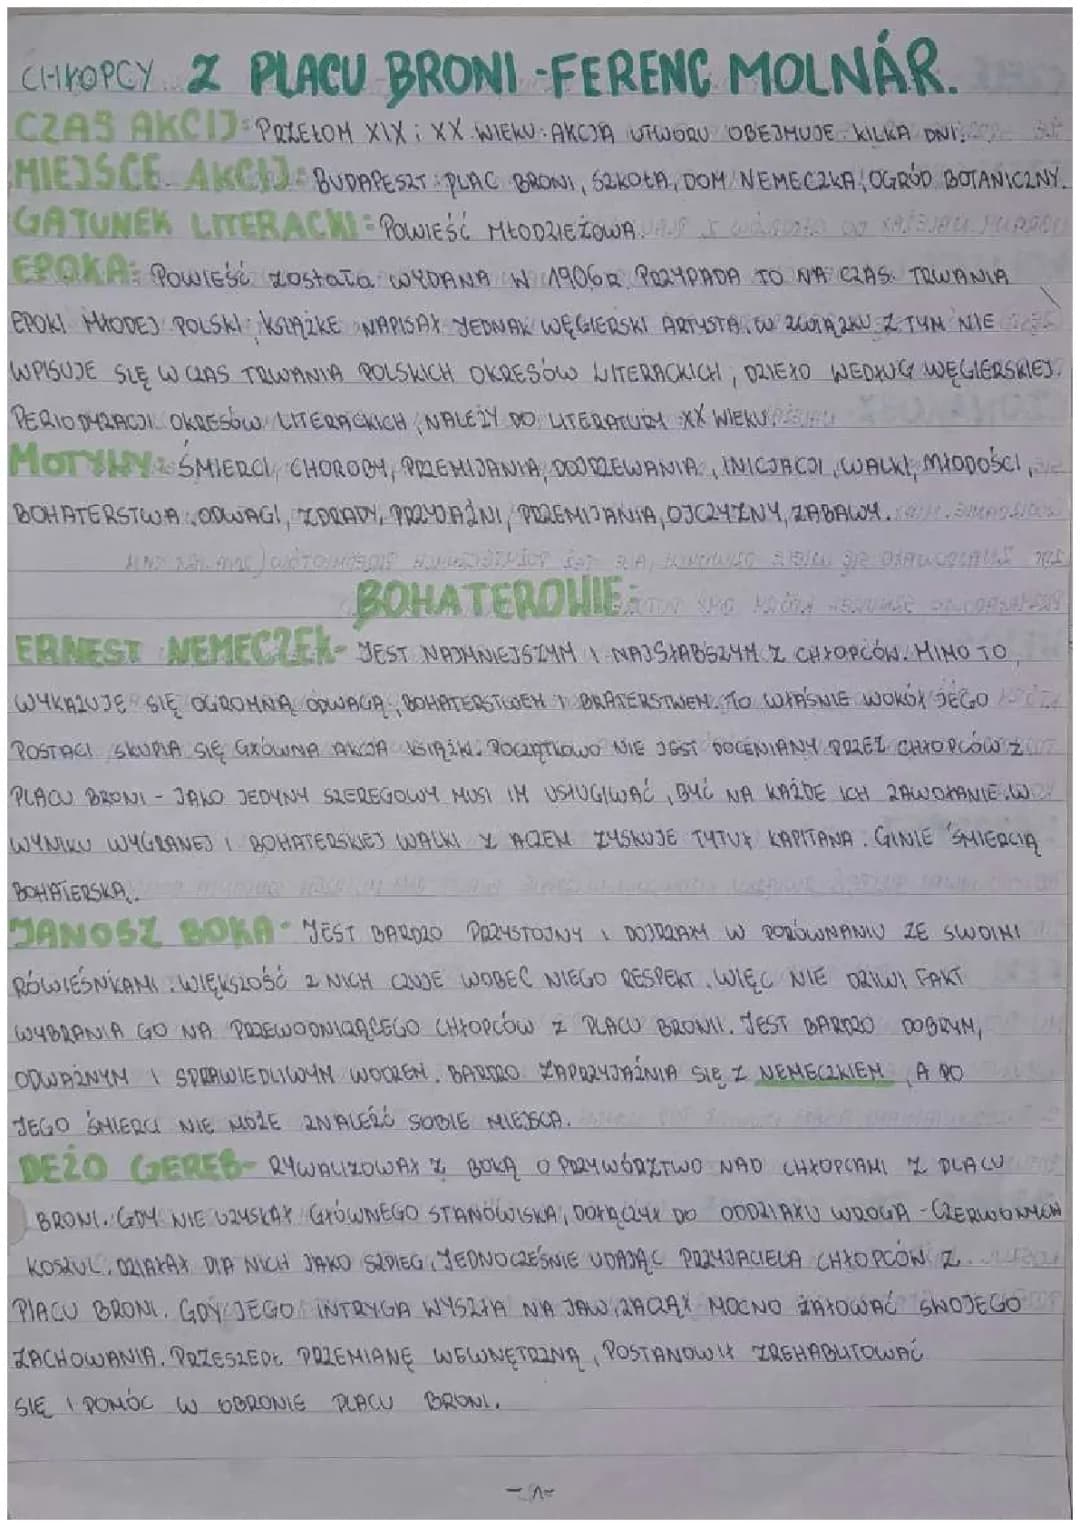 CHŁOPCY Z PLACU BRONI - FERENC MOLNÁR.
CZAS AKCIJ: PRZEŁOM XIX i XX WIEKU. AKCJA UTWORU OBEJMUJE KILKA DNI.
MIEJSCE AKCIJ: BUDAPESZT: PLAC BRONI, SZKOŁA, DOM NEMECZKA, OGRÓD BOTANICZNY.
GATUNEK LITERACKI: POWIEŚĆ MŁODZIEŻOWA.
EPOKA: POWIEŚĆ ZOSTAŁA WYDANA W 1906R. PRZYPADA TO NA CZAS TRWANIA
EPOKI MŁODEJ POLSKI. KSIĄŻKE NAPISAŁ JEDNAK WĘGIERSKI ARTYSTA. W ZWIĄZKU Z TYM NIE
WPISUJE SIĘ W CZAS TRWANIA POLSKICH OKRESÓW LITERACKICH, DZIEŁO WEDŁUG WĘGIERSKIEJ
PERIODYZACJI OKRESÓW LITERACKICH, NALEŻY DO LITERATURY XX WIEKU.
MOTYWY: ŚMIERCI, CHOROBY, PRZEMIJANIA, DOJRZEWANIA, INICJACJI, WALKI, MŁODOŚCI,
BOHATERSTWA, ODWAGI, ZDRADY, PRZYJAŹNI, PRZEMIJANIA, OJCZYZNY, ZABAWY.
BOHATEROWIE:
ERNEST NEMECZEK- JEST NAJMNIEJSZYM I NAJSŁABSZYM Z CHŁOPCÓW. MIMO TO
WYKAZUJE SIĘ OGROMNĄ ODWAGĄ, BOHATERSTWEM I BRATERSTWEM. TO WŁAŚNIE WOKÓŁ JEGO
POSTACI SKUPIA SIĘ GŁÓWNA AKCJA KSIĄŻKI. POCZĄTKOWO NIE JEST DOCENIANY PRZEZ CHŁOPCÓW Z
PLACU BRONI - JAKO JEDYNY SZEREGOWY MUSI IM USŁUGIWAĆ, BYĆ NA KAŻDE ICH ZAWOŁANIE. W
WYNIKU WYGRANEJ I BOHATERSKIEJ WALKI Z ACZEM ZYSKUJE TYTUŁ KAPITANA. GINIE ŚMIERCIĄ
BOHATERSKĄ.
JANOSZ BOKA- JEST BARDZO PRZYSTOJNY I DOJRZAŁY W PORÓWNANIU ZE SWOIMI
RÓWIEŚNIKAMI. WIĘKSZOŚĆ Z NICH CZUJE WOBEC NIEGO RESPEKT, WIĘC NIE DZIWI FAKT
WYBRANIA GO NA PRZEWODNIZĄCEGO CHŁOPCÓW Z PLACU BRONII. JEST BARDZO DOBRYM,
ODWAŻNYM I SPRAWIEDLIWYM WODZEM. BARDZO ZAPRZYJAŹNIA SIĘ Z NEMECZKIEM, A PO
JEGO ŚMIERCI NIE MOŻE ZNALEŹĆ SOBIE MIEJSCA.
DEŻO GEREB- RYWALIZOWAŁ Z BOKĄ O PRZYWÓDZTWO NAD CHŁOPCAMI Z PLACU
BRONI. GDY NIE UZYSKAŁ GŁÓWNEGO STANOWISKA, DOŁĄCZYŁ DO ODDZIAŁU WROGA - CZERWONYCH
KOSZUL. DZIAŁAŁ DLA NICH JAKO SZPIEG, JEDNOCZEŚNIE UDAJĄC PRZYJACIELA CHŁOPCÓW Z
PLACU BRONI. GDY JEGO INTRYGA WYSZŁA NA JAW, ZACZĄŁ MOCNO ŻAŁOWAĆ SWOJEGO
ZACHOWANIA. PRZESZEDŁ PRZEMIANĘ WEWNĘTRZNĄ, POSTANOWIŁ ZREHABILITOWAĆ
SIĘ I POMÓC W OBRONIE PLACU BRONI.
-1-